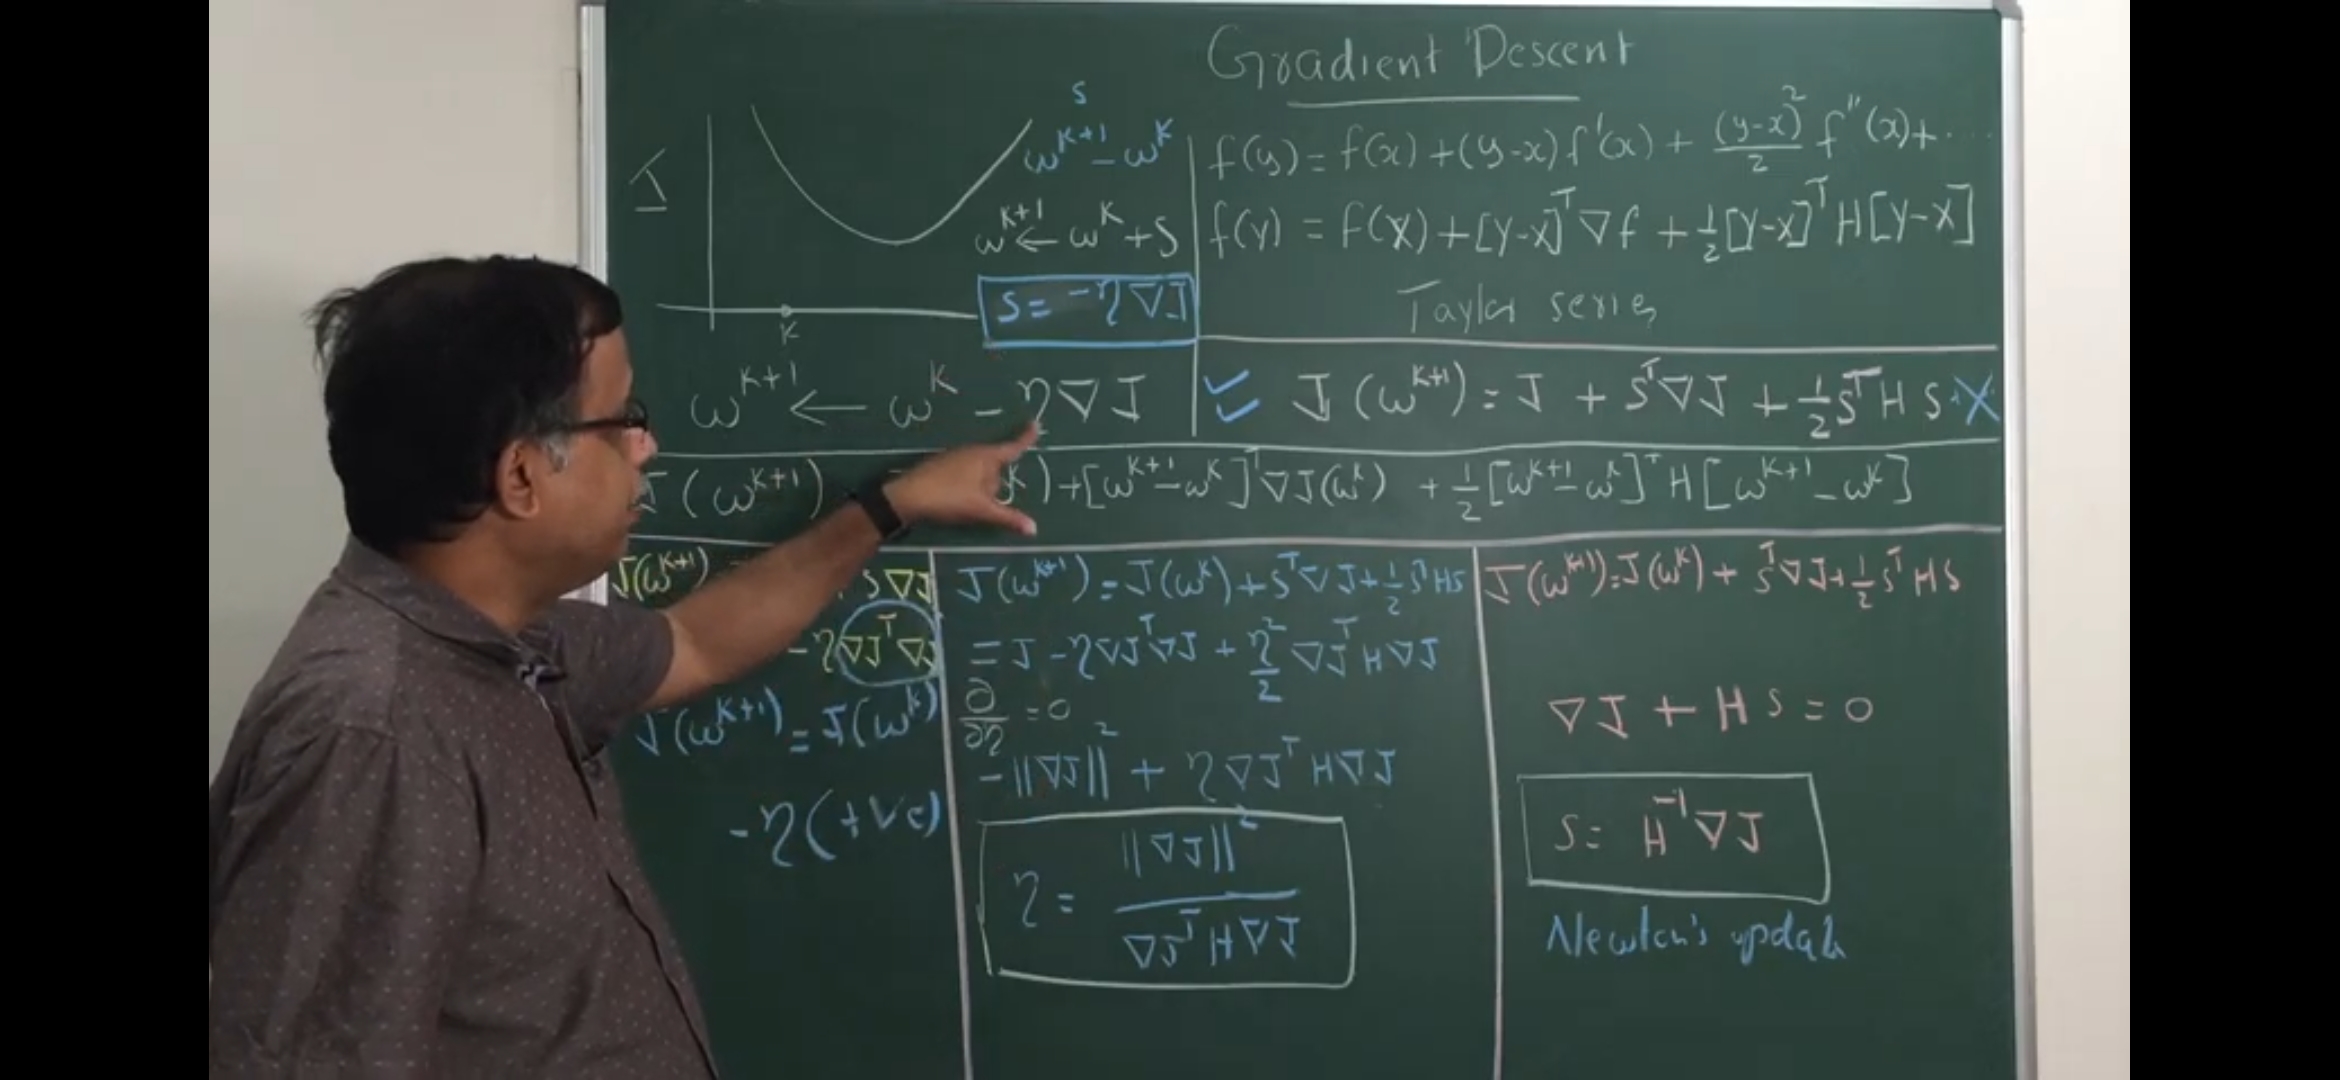 Gradient Descent
J
K
s
ω^{K+1} - ω^K
ω^{K+1} ← ω^K + s
s = -η∇J
f(y) = f(x) + (y-x) f'(x) + (y-x)^2/2 f''(x) + ...
f(Y) = f(X) + [Y-X]^T ∇f + 1/2 [Y-X]^T H [Y-X]
Taylor series
ω^{K+1} ← ω^K - η∇J
J(ω^{K+1}) = J + S^T ∇J + 1/2 S^T H S
J(ω^{K+1}) ω^K) + [ω^{K+1} - ω^K]^T ∇J(ω^K) + 1/2 [ω^{K+1} - ω^K]^T H [ω^{K+1} - ω^K]
J(ω^{K+1}) S ∇J
-η∇J^T ∇J
J(ω^{K+1}) = J(ω^K)
-η(+ve)
J(ω^{K+1}) = J(ω^K) + S^T ∇J + 1/2 S^T H S
= J - η∇J^T ∇J + η^2/2 ∇J^T H ∇J
∂/∂η = 0
-||∇J||^2 + η∇J^T H ∇J
η = ||∇J||^2 / ∇J^T H ∇J
J(ω^{K+1}) = J(ω^K) + S^T ∇J + 1/2 S^T H S
∇J + H S = 0
S = H^{-1} ∇J
Newton's update